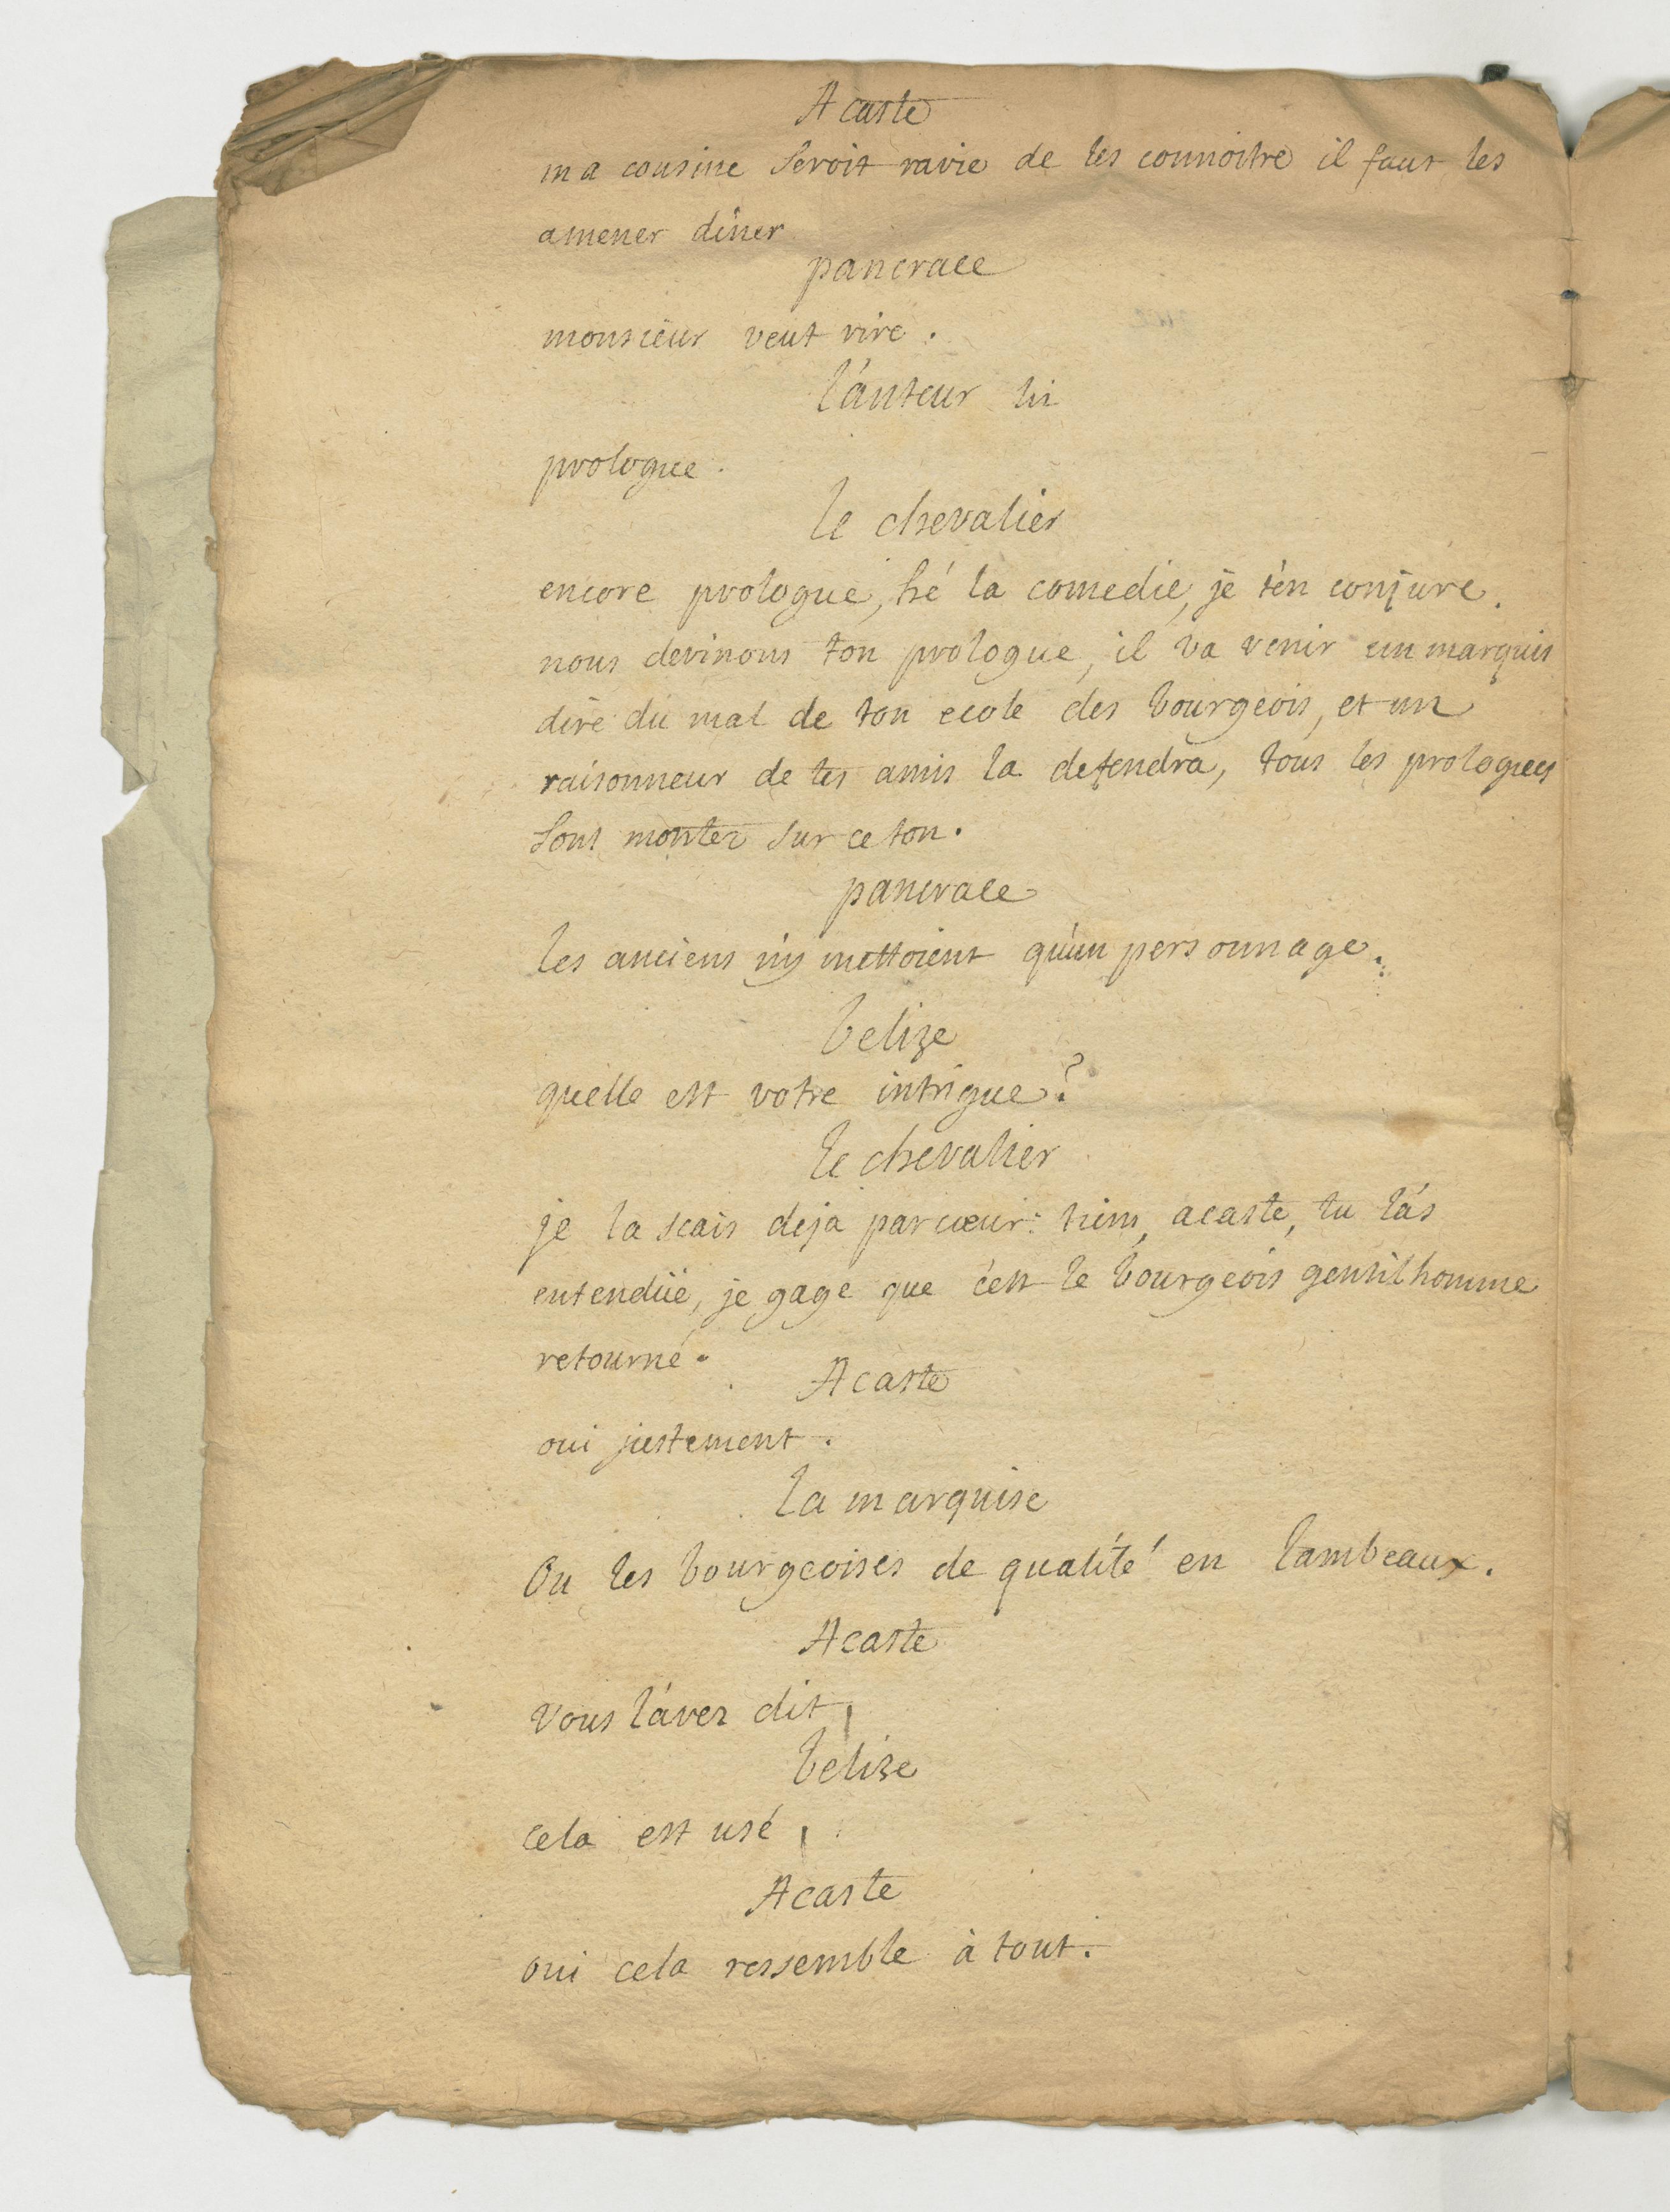 Acaste
ma cousine seroit ravie de les connoitre il faut les
amener diner
pancrace
monsieur veut rire.
l'auteur lit
prologue.
le chevalier
encore prologue, hé la comedie, je t'en conjure.
nous devinons ton prologue, il va venir un marquis
dire du mal de ton ecole des bourgeois, et un
raisonneur de tes amis la defendra, tous les prologues
sont montez sur ce ton.
pancrace
les anciens n'y mettoient qu'un personnage.
belize
quelle est votre intrigue?
le chevalier
je la scais deja par cœur: tiens, acaste, tu l'as
entendüe, je gage que c'est le bourgeois gentilhomme
retourné.
Acaste
oui justement.
la marquise
Ou les bourgeoises de qualité en lambeaux.
Acaste
Vous l'avez dit,
belize
cela est usé,
Acaste
oui cela ressemble à tout.